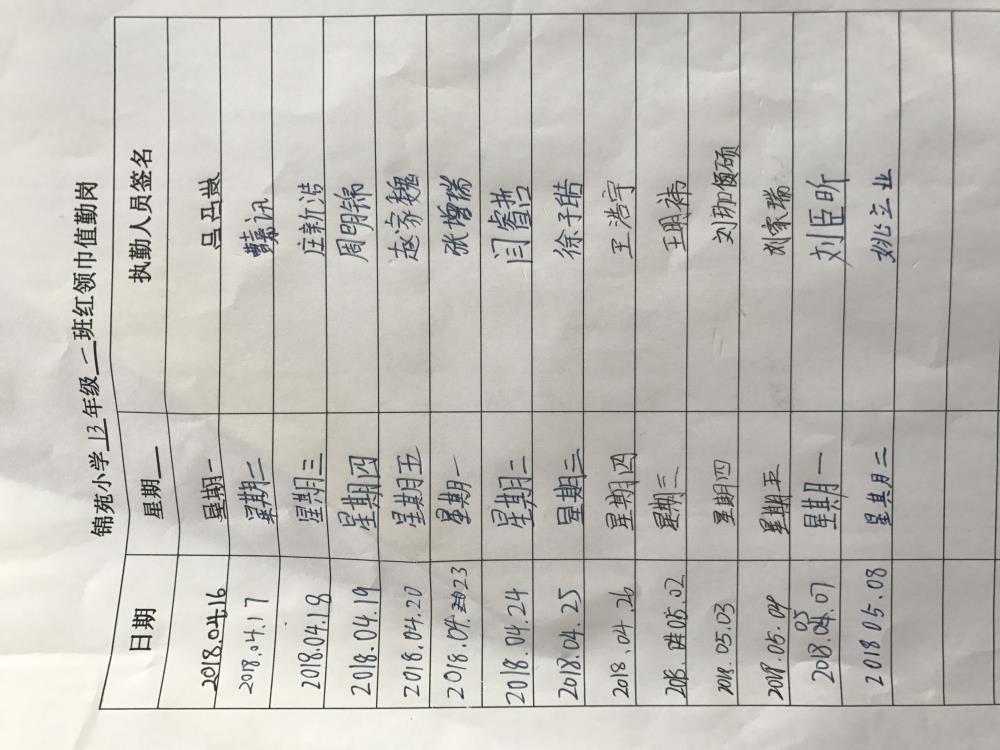 锦苑小学13年级一班红领巾值勤岗
日期 星期 执勤人员签名
2018.04.16 星期一
2018.04.17 星期二
2018.04.18 星期三 庄新浩
2018.04.19 星期四 周明锦
2018.04.20 星期五 赵家魏
2018.04.23 星期一 张增瑞
2018.04.24 星期二 闫睿哲
2018.04.25 星期三 徐子皓
2018.04.26 星期四 王浩宇
2018.05.02 星期三 王明祎
2018.05.03 星期四
2018.05.04 星期五 刘家瑞
2018.05.07 星期一 刘臣昕
2018.05.08 星期二 姚立业